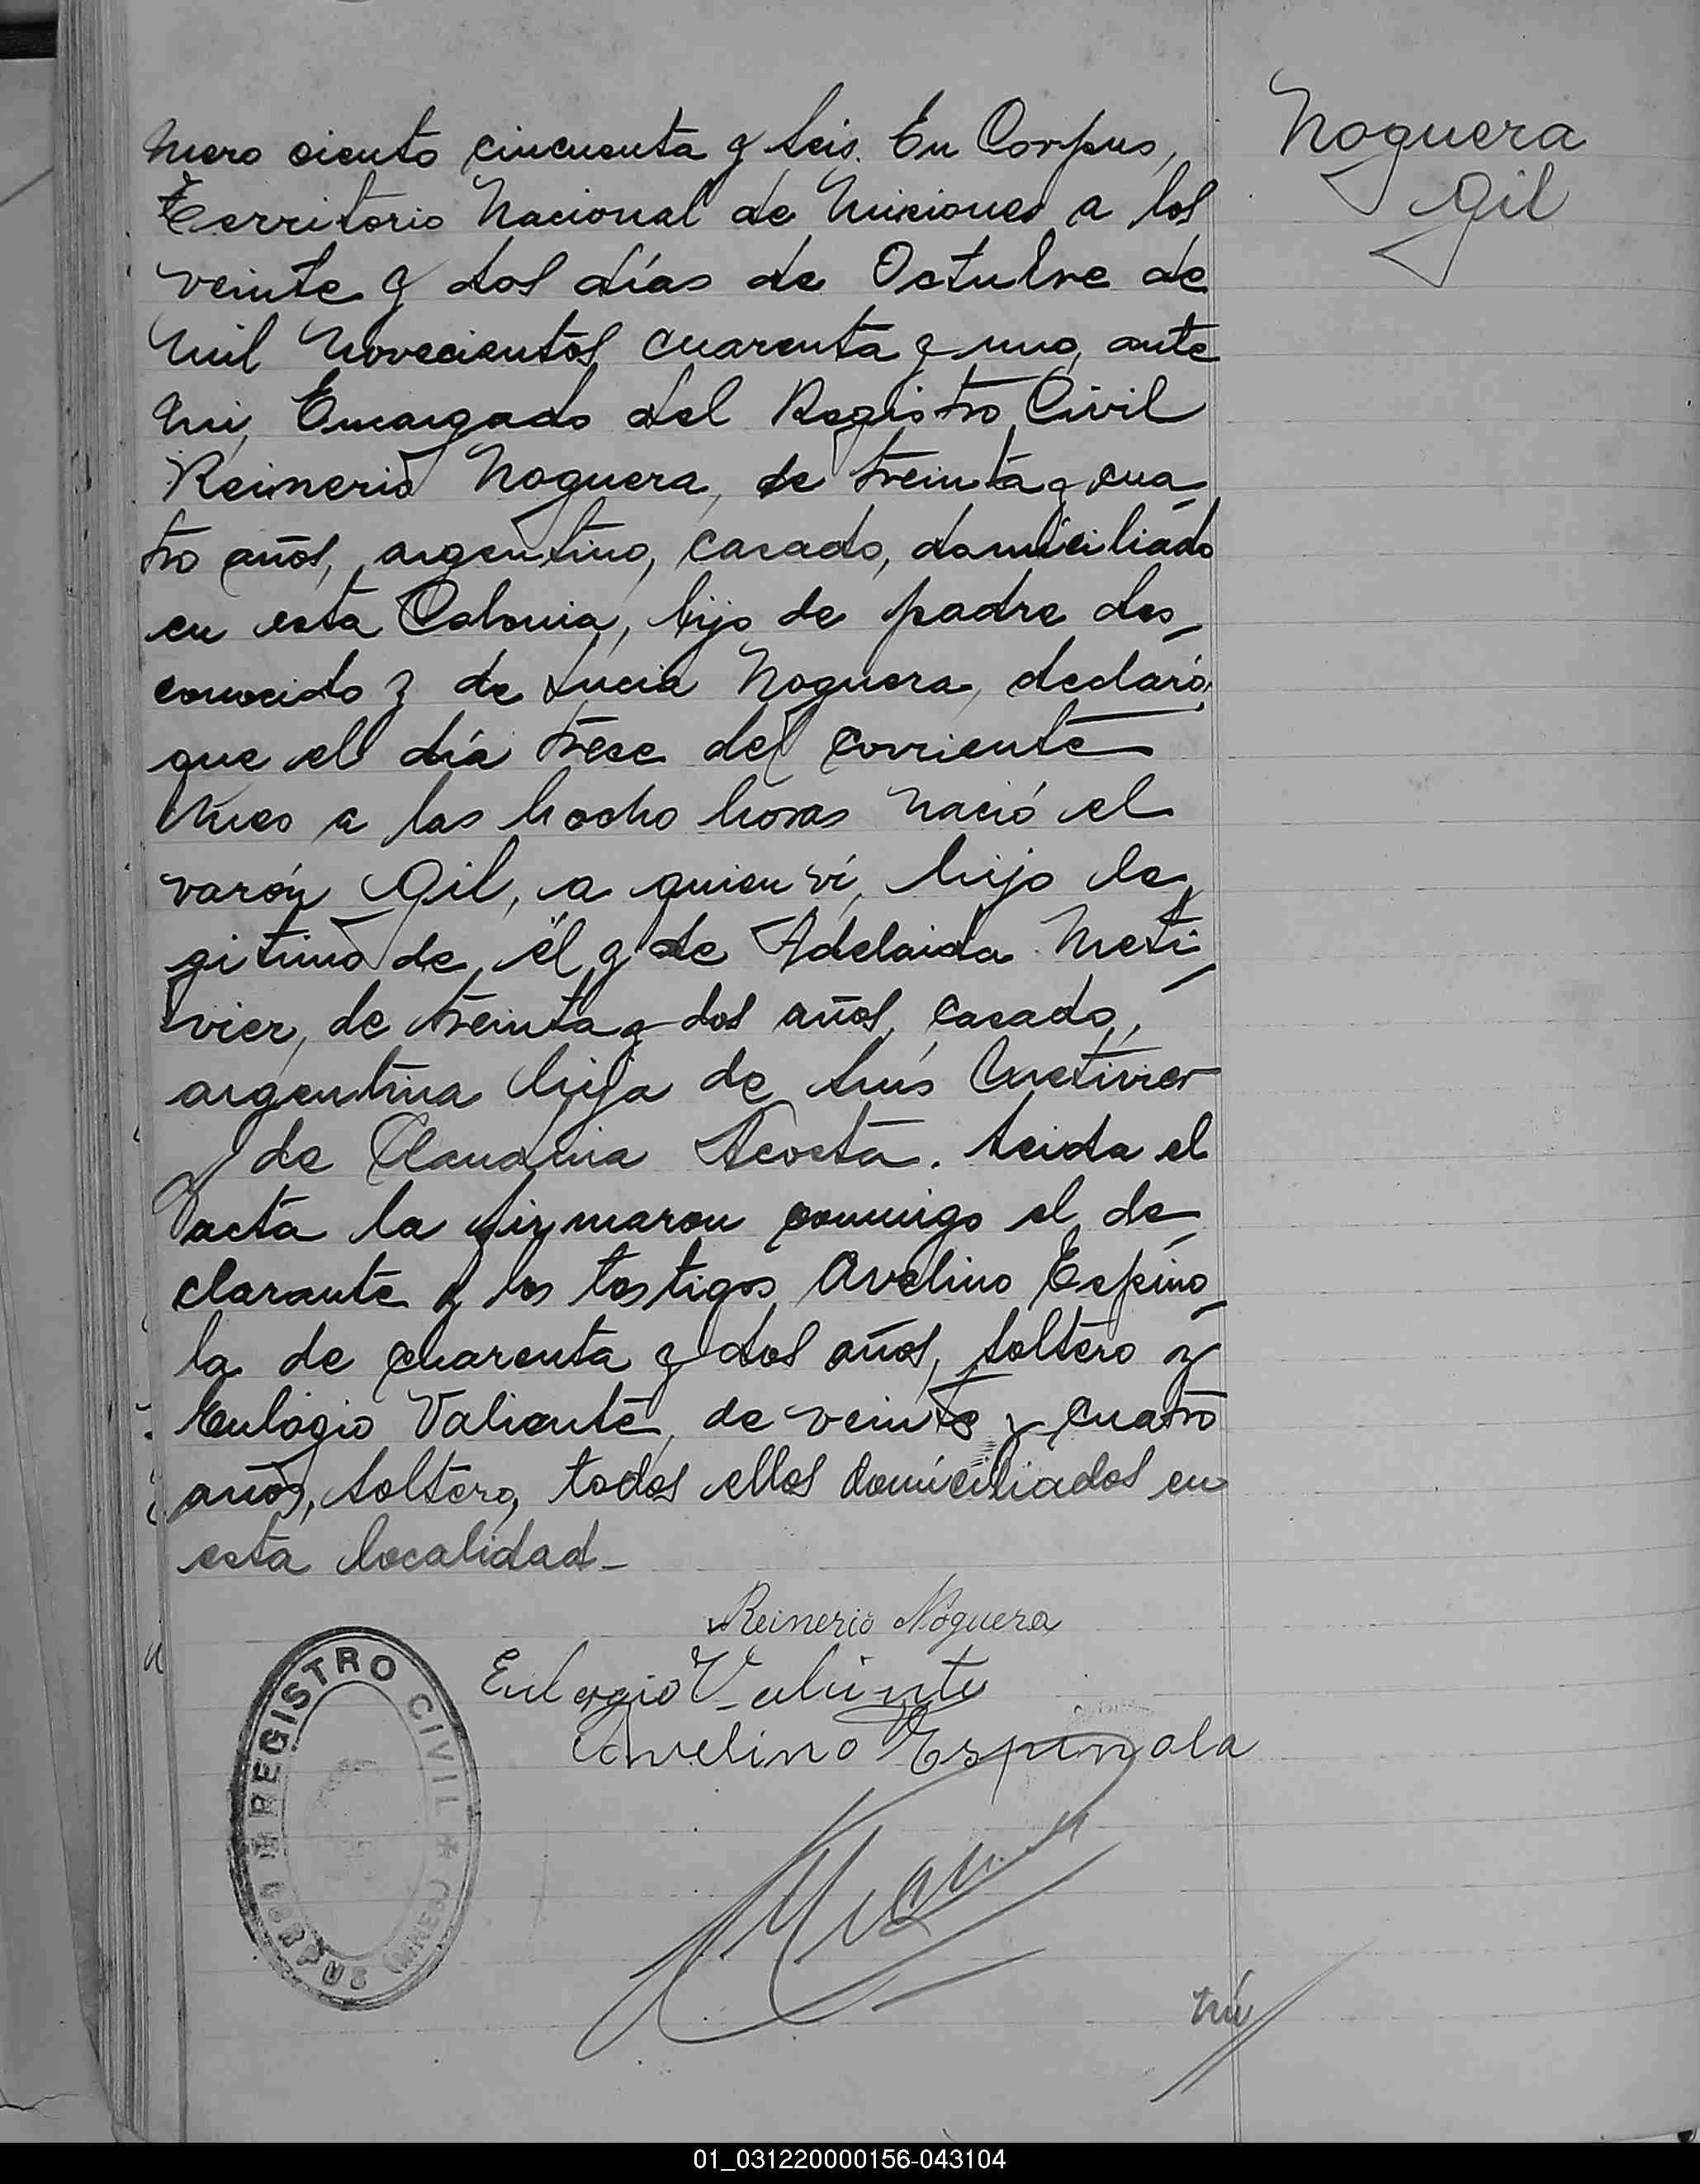 Noguera
Gil
mero ciento cincuenta y seis. En Corpus,
Territorio Nacional de Misiones a los
veinte y dos días de Octubre de
mil novecientos cuarenta y uno, ante
mi, Encargado del Registro Civil
Reinerio Noguera, de treinta y cua-
tro años, argentino, casado, domiciliado
en esta Colonia, hijo de padre des-
conocido y de Lucia Noguera, declaró,
que el día trece del corriente
mes a las hocho horas nació el
varón Gil, a quien ví, hijo le-
gitimo de él y de Adelaida Meti-
vier, de treinta y dos años, casada,
argentina hija de Luís Metivier
y de Claudina Acosta. Leida el
acta la firmaron conmigo el de-
clarante y los testigos Avelino Espino-
la de cuarenta y dos años, soltero y
Eulogio Valiente, de veinte y cuatro
años, soltero, todos ellos domiciliados en
esta localidad-
Reinerio Noguera
Eulogio Valiente
Avelino Espinola
REGISTRO CIVIL * CORPUS (MNES.) *
01_031220000156-043104